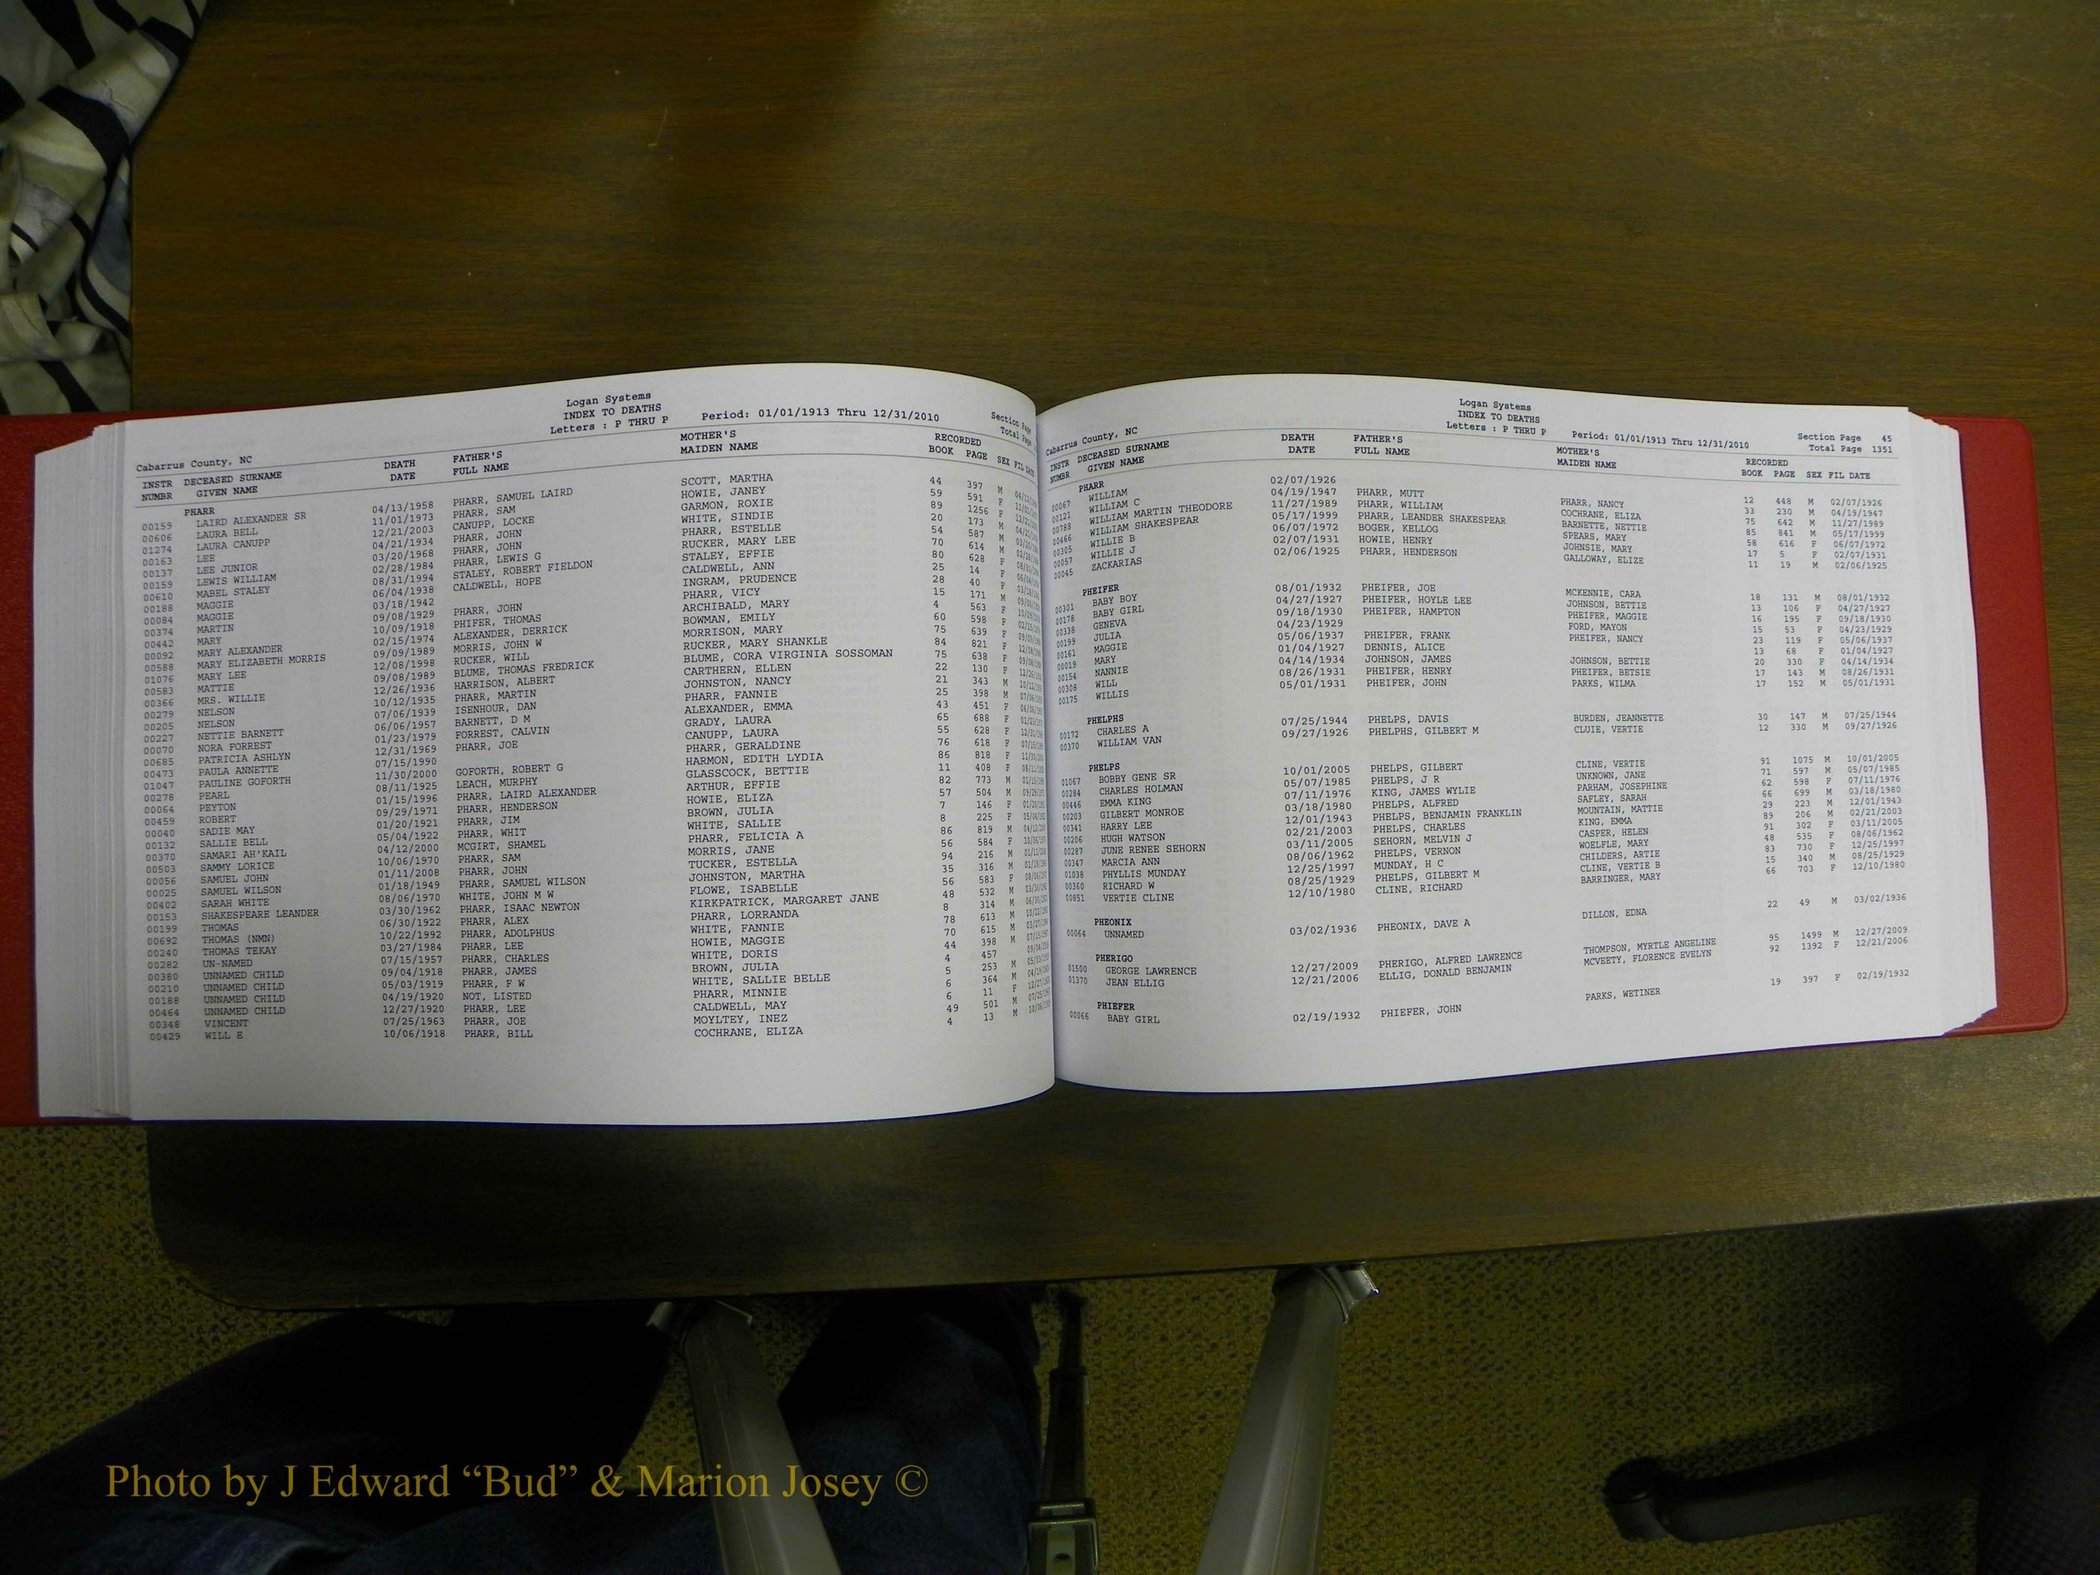 Logan Systems
INDEX TO DEATHS
Letters : P THRU P Period: 01/01/1913 Thru 12/31/2010 Section Page
Cabarrus County, NC Total Page
INSTR DECEASED SURNAME DEATH FATHER'S MOTHER'S RECORDED
NUMBR GIVEN NAME DATE FULL NAME MAIDEN NAME BOOK PAGE SEX FIL DATE
PHARR
00159 LAIRD ALEXANDER SR 04/13/1958 PHARR, SAMUEL LAIRD SCOTT, MARTHA 44 397 M
00606 LAURA BELL 11/01/1973 PHARR, SAM HOWIE, JANEY 59 591 F
01274 LAURA CANUPP 12/21/2003 CANUPP, LOCKE GARMON, ROXIE 89 1256 F
00163 LEE 04/21/1934 PHARR, JOHN WHITE, SINDIE 20 173 M
00137 LEE JUNIOR 03/20/1968 PHARR, JOHN PHARR, ESTELLE 54 587 M
00159 LEWIS WILLIAM 02/28/1984 PHARR, LEWIS G RUCKER, MARY LEE 70 614 M
00610 MABEL STALEY 08/31/1994 STALEY, ROBERT FIELDON STALEY, EFFIE 80 628 F
00188 MAGGIE 06/04/1938 CALDWELL, HOPE CALDWELL, ANN 25 14 F
00084 MAGGIE 03/18/1942 INGRAM, PRUDENCE 28 40 F
00374 MARTIN 09/08/1929 PHARR, JOHN PHARR, VICY 15 171 M
00442 MARY 10/09/1918 PHIFER, THOMAS ARCHIBALD, MARY 4 563 F
00092 MARY ALEXANDER 02/15/1974 ALEXANDER, DERRICK BOWMAN, EMILY 60 598 F
00588 MARY ELIZABETH MORRIS 09/09/1989 MORRIS, JOHN W MORRISON, MARY 75 639 F
01076 MARY LEE 12/08/1998 RUCKER, WILL RUCKER, MARY SHANKLE 84 821 F
00583 MATTIE 09/08/1989 BLUME, THOMAS FREDRICK BLUME, CORA VIRGINIA SOSSOMAN 75 638 F
00366 MRS. WILLIE 12/26/1936 HARRISON, ALBERT CARTHERN, ELLEN 22 130 F
00279 NELSON 10/12/1935 PHARR, MARTIN JOHNSTON, NANCY 21 343 M
00205 NELSON 07/06/1939 ISENHOUR, DAN PHARR, FANNIE 25 398 M
00227 NETTIE BARNETT 06/06/1957 BARNETT, D M ALEXANDER, EMMA 43 451 F
00070 NORA FORREST 01/23/1979 FORREST, CALVIN GRADY, LAURA 65 688 F
00685 PATRICIA ASHLYN 12/31/1969 PHARR, JOE CANUPP, LAURA 55 628 F
00473 PAULA ANNETTE 07/15/1990 PHARR, GERALDINE 76 618 F
01047 PAULINE GOFORTH 11/30/2000 GOFORTH, ROBERT G HARMON, EDITH LYDIA 86 818 F
00278 PEARL 08/11/1925 LEACH, MURPHY GLASSCOCK, BETTIE 11 408 F
00064 PEYTON 01/15/1996 PHARR, LAIRD ALEXANDER ARTHUR, EFFIE 82 773 M
00459 ROBERT 09/29/1971 PHARR, HENDERSON HOWIE, ELIZA 57 504 M
00040 SADIE MAY 01/20/1921 PHARR, JIM BROWN, JULIA 7 146 F
00132 SALLIE BELL 05/04/1922 PHARR, WHIT WHITE, SALLIE 8 225 F
00370 SAMARI AH'KAIL 04/12/2000 MCGIRT, SHAMEL PHARR, FELICIA A 86 819 M
00503 SAMMY LORICE 10/06/1970 PHARR, SAM MORRIS, JANE 56 584 F
00056 SAMUEL JOHN 01/11/2008 PHARR, JOHN TUCKER, ESTELLA 94 216 M
00025 SAMUEL WILSON 01/18/1949 PHARR, SAMUEL WILSON JOHNSTON, MARTHA 35 316 M
00402 SARAH WHITE 08/06/1970 WHITE, JOHN M W FLOWE, ISABELLE 56 583 F
00153 SHAKESPEARE LEANDER 03/30/1962 PHARR, ISAAC NEWTON KIRKPATRICK, MARGARET JANE 48 532 M
00199 THOMAS 06/30/1922 PHARR, ALEX PHARR, LORRANDA 8 314 M
00692 THOMAS (NMN) 10/22/1992 PHARR, ADOLPHUS WHITE, FANNIE 78 613 M
00240 THOMAS TEKAY 03/27/1984 PHARR, LEE HOWIE, MAGGIE 70 615 M
00282 UN-NAMED 07/15/1957 PHARR, CHARLES WHITE, DORIS 44 398 M
00380 UNNAMED CHILD 09/04/1918 PHARR, JAMES BROWN, JULIA 4 457
00210 UNNAMED CHILD 05/03/1919 PHARR, F W WHITE, SALLIE BELLE 5 253 M
00188 UNNAMED CHILD 04/19/1920 NOT, LISTED PHARR, MINNIE 6 364 M
00464 UNNAMED CHILD 12/27/1920 PHARR, LEE CALDWELL, MAY 6 11 F
00348 VINCENT 07/25/1963 PHARR, JOE MOYLTEY, INEZ 49 501 M
00429 WILL E 10/06/1918 PHARR, BILL COCHRANE, ELIZA 4 13 M
Logan Systems
INDEX TO DEATHS
Letters : P THRU P Period: 01/01/1913 Thru 12/31/2010 Section Page 45
Cabarrus County, NC Total Page 1351
INSTR DECEASED SURNAME DEATH FATHER'S MOTHER'S RECORDED
NUMBR GIVEN NAME DATE FULL NAME MAIDEN NAME BOOK PAGE SEX FIL DATE
PHARR
00067 WILLIAM 02/07/1926 12 448 M 02/07/1926
00121 WILLIAM C 04/19/1947 PHARR, MUTT PHARR, NANCY 33 230 M 04/19/1947
00788 WILLIAM MARTIN THEODORE 11/27/1989 PHARR, WILLIAM COCHRANE, ELIZA 75 642 M 11/27/1989
00466 WILLIAM SHAKESPEAR 05/17/1999 PHARR, LEANDER SHAKESPEAR BARNETTE, NETTIE 85 841 M 05/17/1999
00305 WILLIE B 06/07/1972 BOGER, KELLOG SPEARS, MARY 58 616 F 06/07/1972
00057 WILLIE J 02/07/1931 HOWIE, HENRY JOHNSIE, MARY 17 5 F 02/07/1931
00045 ZACKARIAS 02/06/1925 PHARR, HENDERSON GALLOWAY, ELIZE 11 19 M 02/06/1925
PHEIFER
00301 BABY BOY 08/01/1932 PHEIFER, JOE MCKENNIE, CARA 18 131 M 08/01/1932
00178 BABY GIRL 04/27/1927 PHEIFER, HOYLE LEE JOHNSON, BETTIE 13 106 F 04/27/1927
00338 GENEVA 09/18/1930 PHEIFER, HAMPTON PHEIFER, MAGGIE 16 195 F 09/18/1930
00199 JULIA 04/23/1929 FORD, MAYON 15 53 F 04/23/1929
00161 MAGGIE 05/06/1937 PHEIFER, FRANK PHEIFER, NANCY 23 119 F 05/06/1937
00019 MARY 01/04/1927 DENNIS, ALICE 13 68 F 01/04/1927
00154 NANNIE 04/14/1934 JOHNSON, JAMES JOHNSON, BETTIE 20 330 F 04/14/1934
00308 WILL 08/26/1931 PHEIFER, HENRY PHEIFER, BETSIE 17 143 M 08/26/1931
00175 WILLIS 05/01/1931 PHEIFER, JOHN PARKS, WILMA 17 152 M 05/01/1931
PHELPHS
00172 CHARLES A 07/25/1944 PHELPS, DAVIS BURDEN, JEANNETTE 30 147 M 07/25/1944
00370 WILLIAM VAN 09/27/1926 PHELPHS, GILBERT M CLUIE, VERTIE 12 330 M 09/27/1926
PHELPS
01067 BOBBY GENE SR 10/01/2005 PHELPS, GILBERT CLINE, VERTIE 91 1075 M 10/01/2005
00284 CHARLES HOLMAN 05/07/1985 PHELPS, J R UNKNOWN, JANE 71 597 M 05/07/1985
00446 EMMA KING 07/11/1976 KING, JAMES WYLIE PARHAM, JOSEPHINE 62 598 F 07/11/1976
00203 GILBERT MONROE 03/18/1980 PHELPS, ALFRED SAFLEY, SARAH 66 699 M 03/18/1980
00341 HARRY LEE 12/01/1943 PHELPS, BENJAMIN FRANKLIN MOUNTAIN, MATTIE 29 223 M 12/01/1943
00206 HUGH WATSON 02/21/2003 PHELPS, CHARLES KING, EMMA 89 206 M 02/21/2003
00287 JUNE RENEE SEHORN 03/11/2005 SEHORN, MELVIN J CASPER, HELEN 91 302 F 03/11/2005
00347 MARCIA ANN 08/06/1962 PHELPS, VERNON WOELFLE, MARY 48 535 F 08/06/1962
01038 PHYLLIS MUNDAY 12/25/1997 MUNDAY, H C CHILDERS, ARTIE 83 730 F 12/25/1997
00360 RICHARD W 08/25/1929 PHELPS, GILBERT M CLINE, VERTIE B 15 340 M 08/25/1929
00851 VERTIE CLINE 12/10/1980 CLINE, RICHARD BARRINGER, MARY 66 703 F 12/10/1980
PHEONIX
00064 UNNAMED 03/02/1936 PHEONIX, DAVE A DILLON, EDNA 22 49 M 03/02/1936
PHERIGO
01500 GEORGE LAWRENCE 12/27/2009 PHERIGO, ALFRED LAWRENCE THOMPSON, MYRTLE ANGELINE 95 1499 M 12/27/2009
01370 JEAN ELLIG 12/21/2006 ELLIG, DONALD BENJAMIN MCVEETY, FLORENCE EVELYN 92 1392 F 12/21/2006
PHIEFER
00066 BABY GIRL 02/19/1932 PHIEFER, JOHN PARKS, WETINER 19 397 F 02/19/1932
Photo by J Edward “Bud” & Marion Josey ©